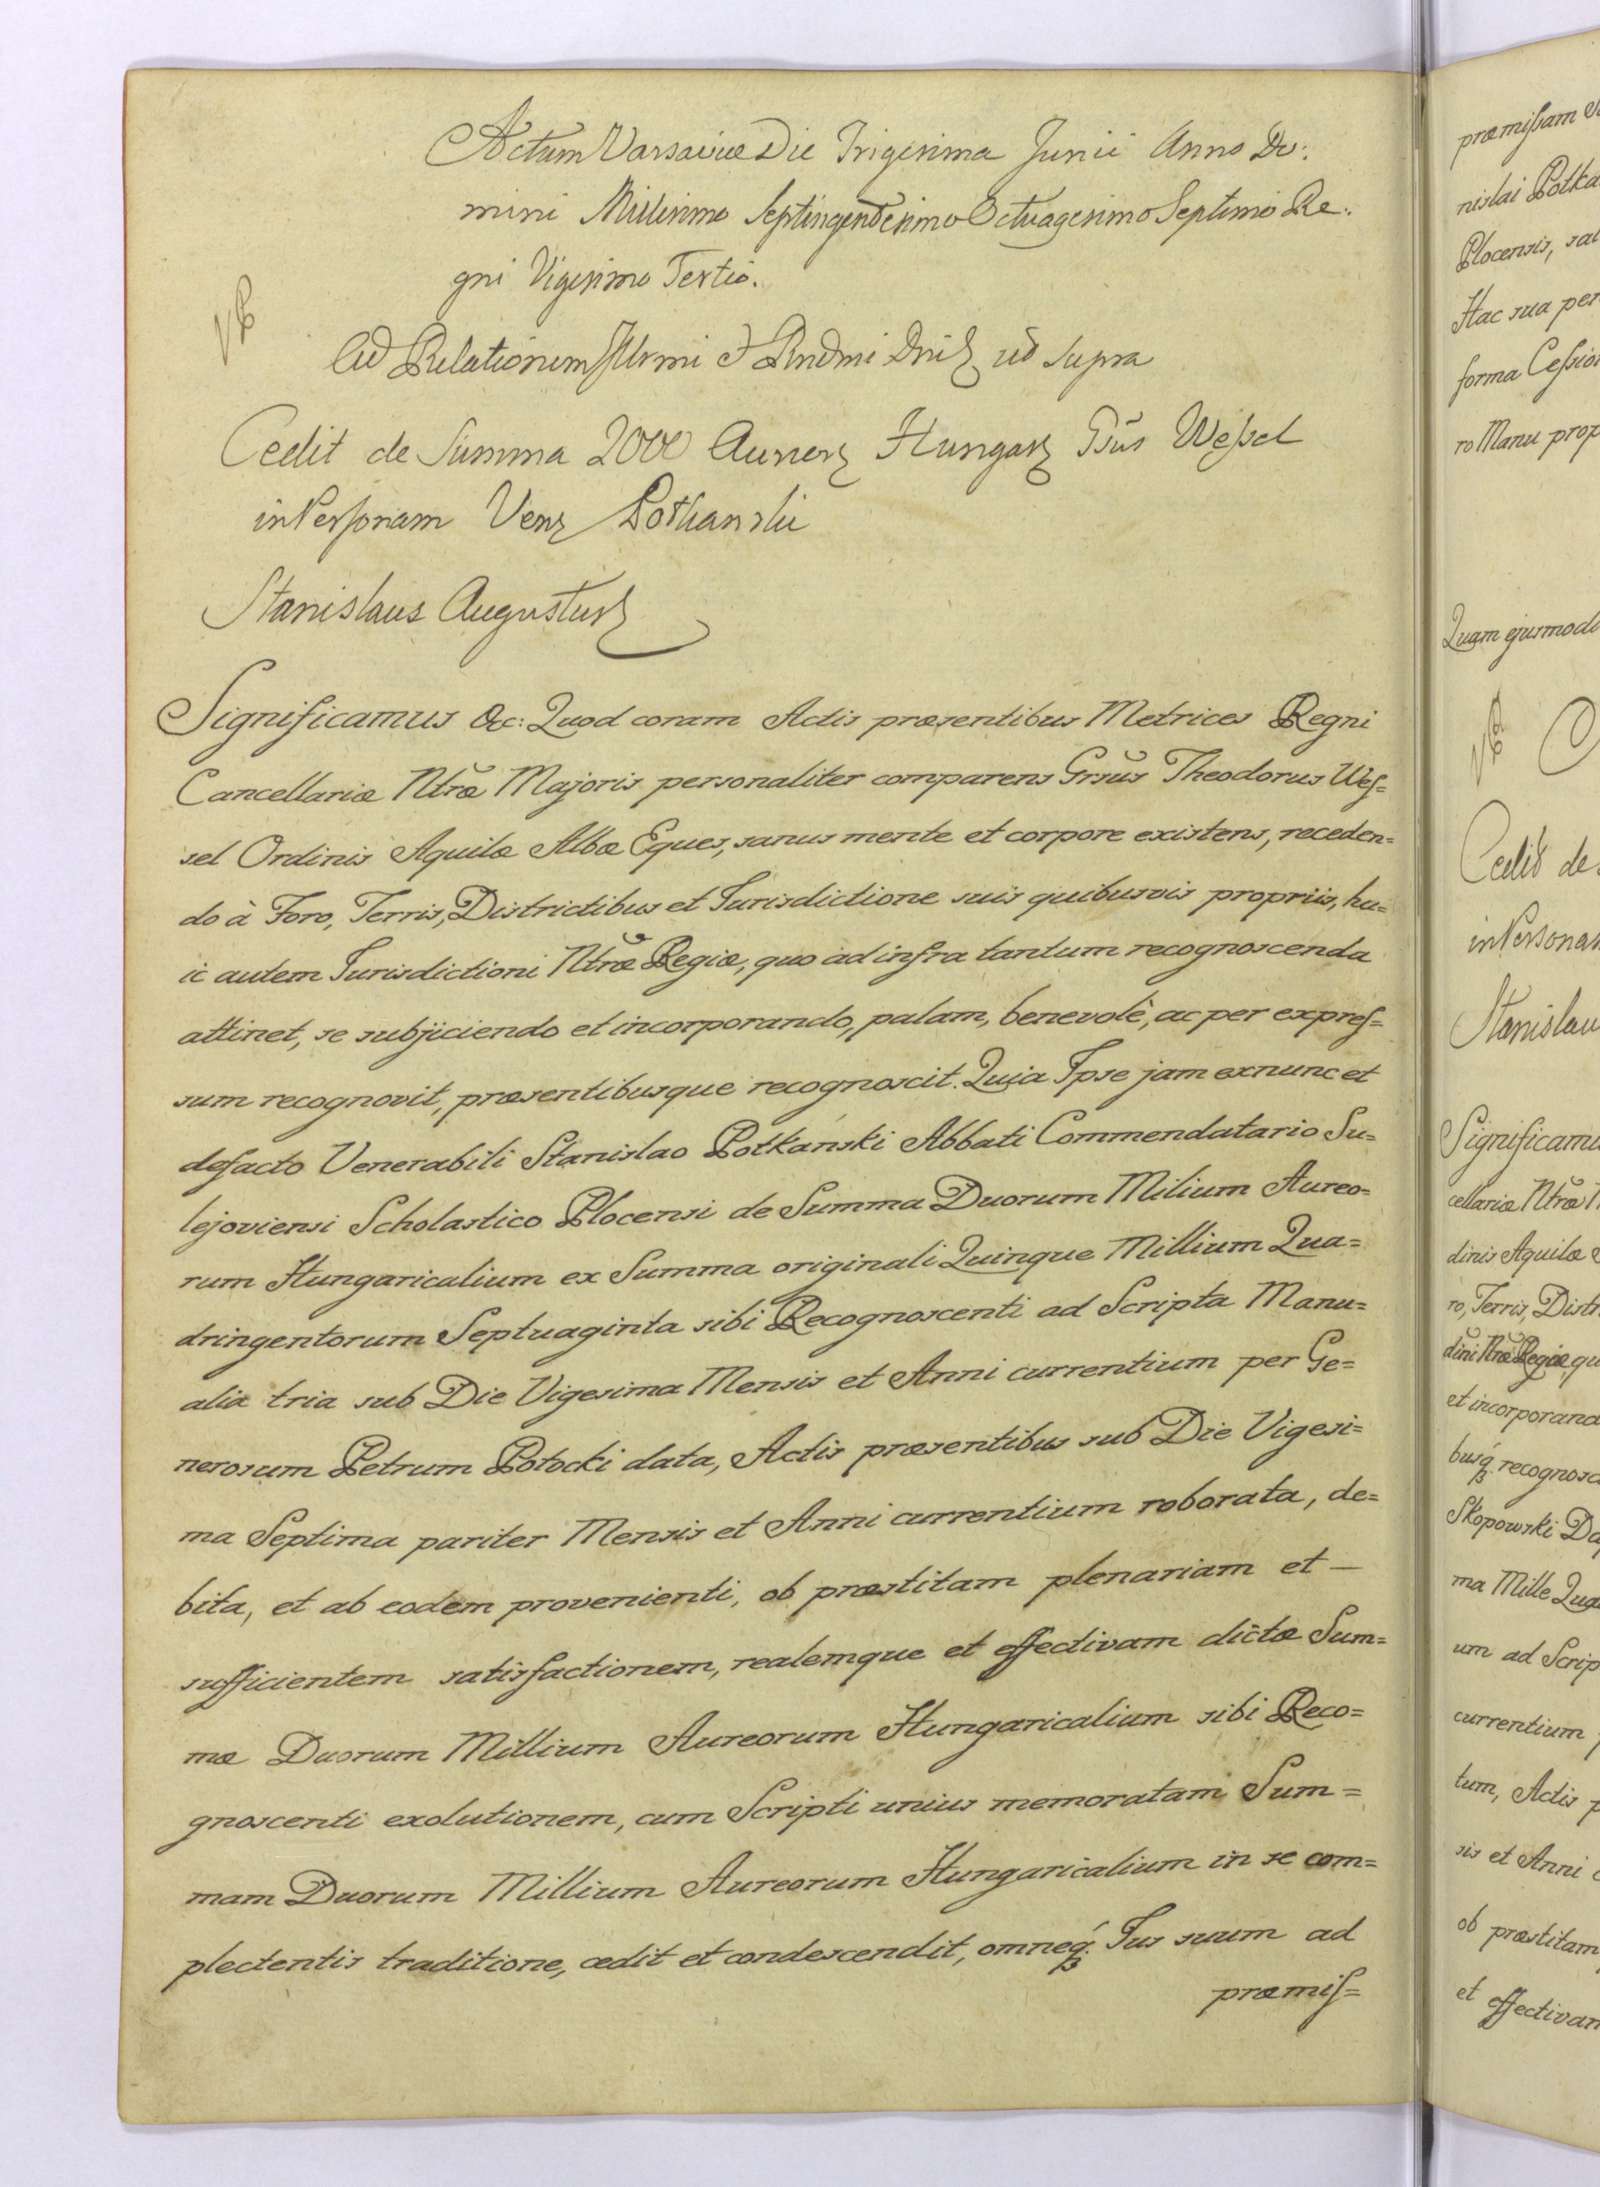 Actum Varsaviæ Die Trigesima Junii Anno Do:
mini Millesimo Septingentesimo Octuagesimo Septimo Re:
gni Vigesimo Tertio.
Ad Relationem Illrmi et Rndmi Dni ut supra
Cedit de Summa 2000 Aureor Hungar Gsūs Wessel
in Personam Vener Potkanski
Stanislaus Augustus
Significamus &c: Quod coram Actis præsentibus Metrices Regni
Cancellariæ Ntræ Majoris personaliter comparens Grsūs Theodorus Wes=
sel Ordinis Aquilæ Albæ Eques, sanus mente et corpore existens, receden=
do à Foro, Terris, Districtibus et Jurisdictione suis quibusvis propriis, hu=
ic autem Jurisdictioni Ntræ Regiæ, quo ad infra tantum recognoscenda
attinet, se subjiciendo et incorporando, palam, benevolè, ac per expres=
sum recognovit, præsentibusque recognoscit. Quia Ipse jam exnunc et
defacto Venerabili Stanislao Potkański Abbati Commendatario Su=
lejoviensi Scholastico Plocensi de Summa Duorum Milium Aureo=
rum Hungaricalium ex Summa originali Quinque Millium Qua=
dringentorum Septuaginta sibi Recognoscenti ad Scripta Manu=
alia tria sub Die Vigesima Mensis et Anni currentium per Ge=
nerosum Petrum Potocki data, Actis præsentibus sub Die Vigesi=
ma Septima pariter Mensis et Anni currentium roborata, de=
bita, et ab eodem provenienti, ob præstitam plenariam et —
sufficientem satisfactionem, realemque et effectivam dictæ Sum=
mæ Duorum Millium Aureorum Hungaricalium sibi Reco=
gnoscenti exolutionem, cum Scripti unius memoratam Sum=
mam Duorum Millium Aureorum Hungaricalium in se com=
plectentis traditione, cedit et condescendit, omneq́ Jus suum ad
præmis=
præmissam
nislai Potka
Plocensis, sal
Hac sua per
forma Cession
ro Manu prop
Quam ejusmodi
Cedit de
in Personam
Stanislau
Significamu
cellariæ Ntræ
dinis Aquilæ
ro, Terris, Distr
dini Ntræ Regiæ, qu
et incorporand
busq́ recognosc
Skopowski
ma Mille Qua
um ad Scrip
currentium
tum, Actis p
sis et Anni c
ob præstitam
et effectivam